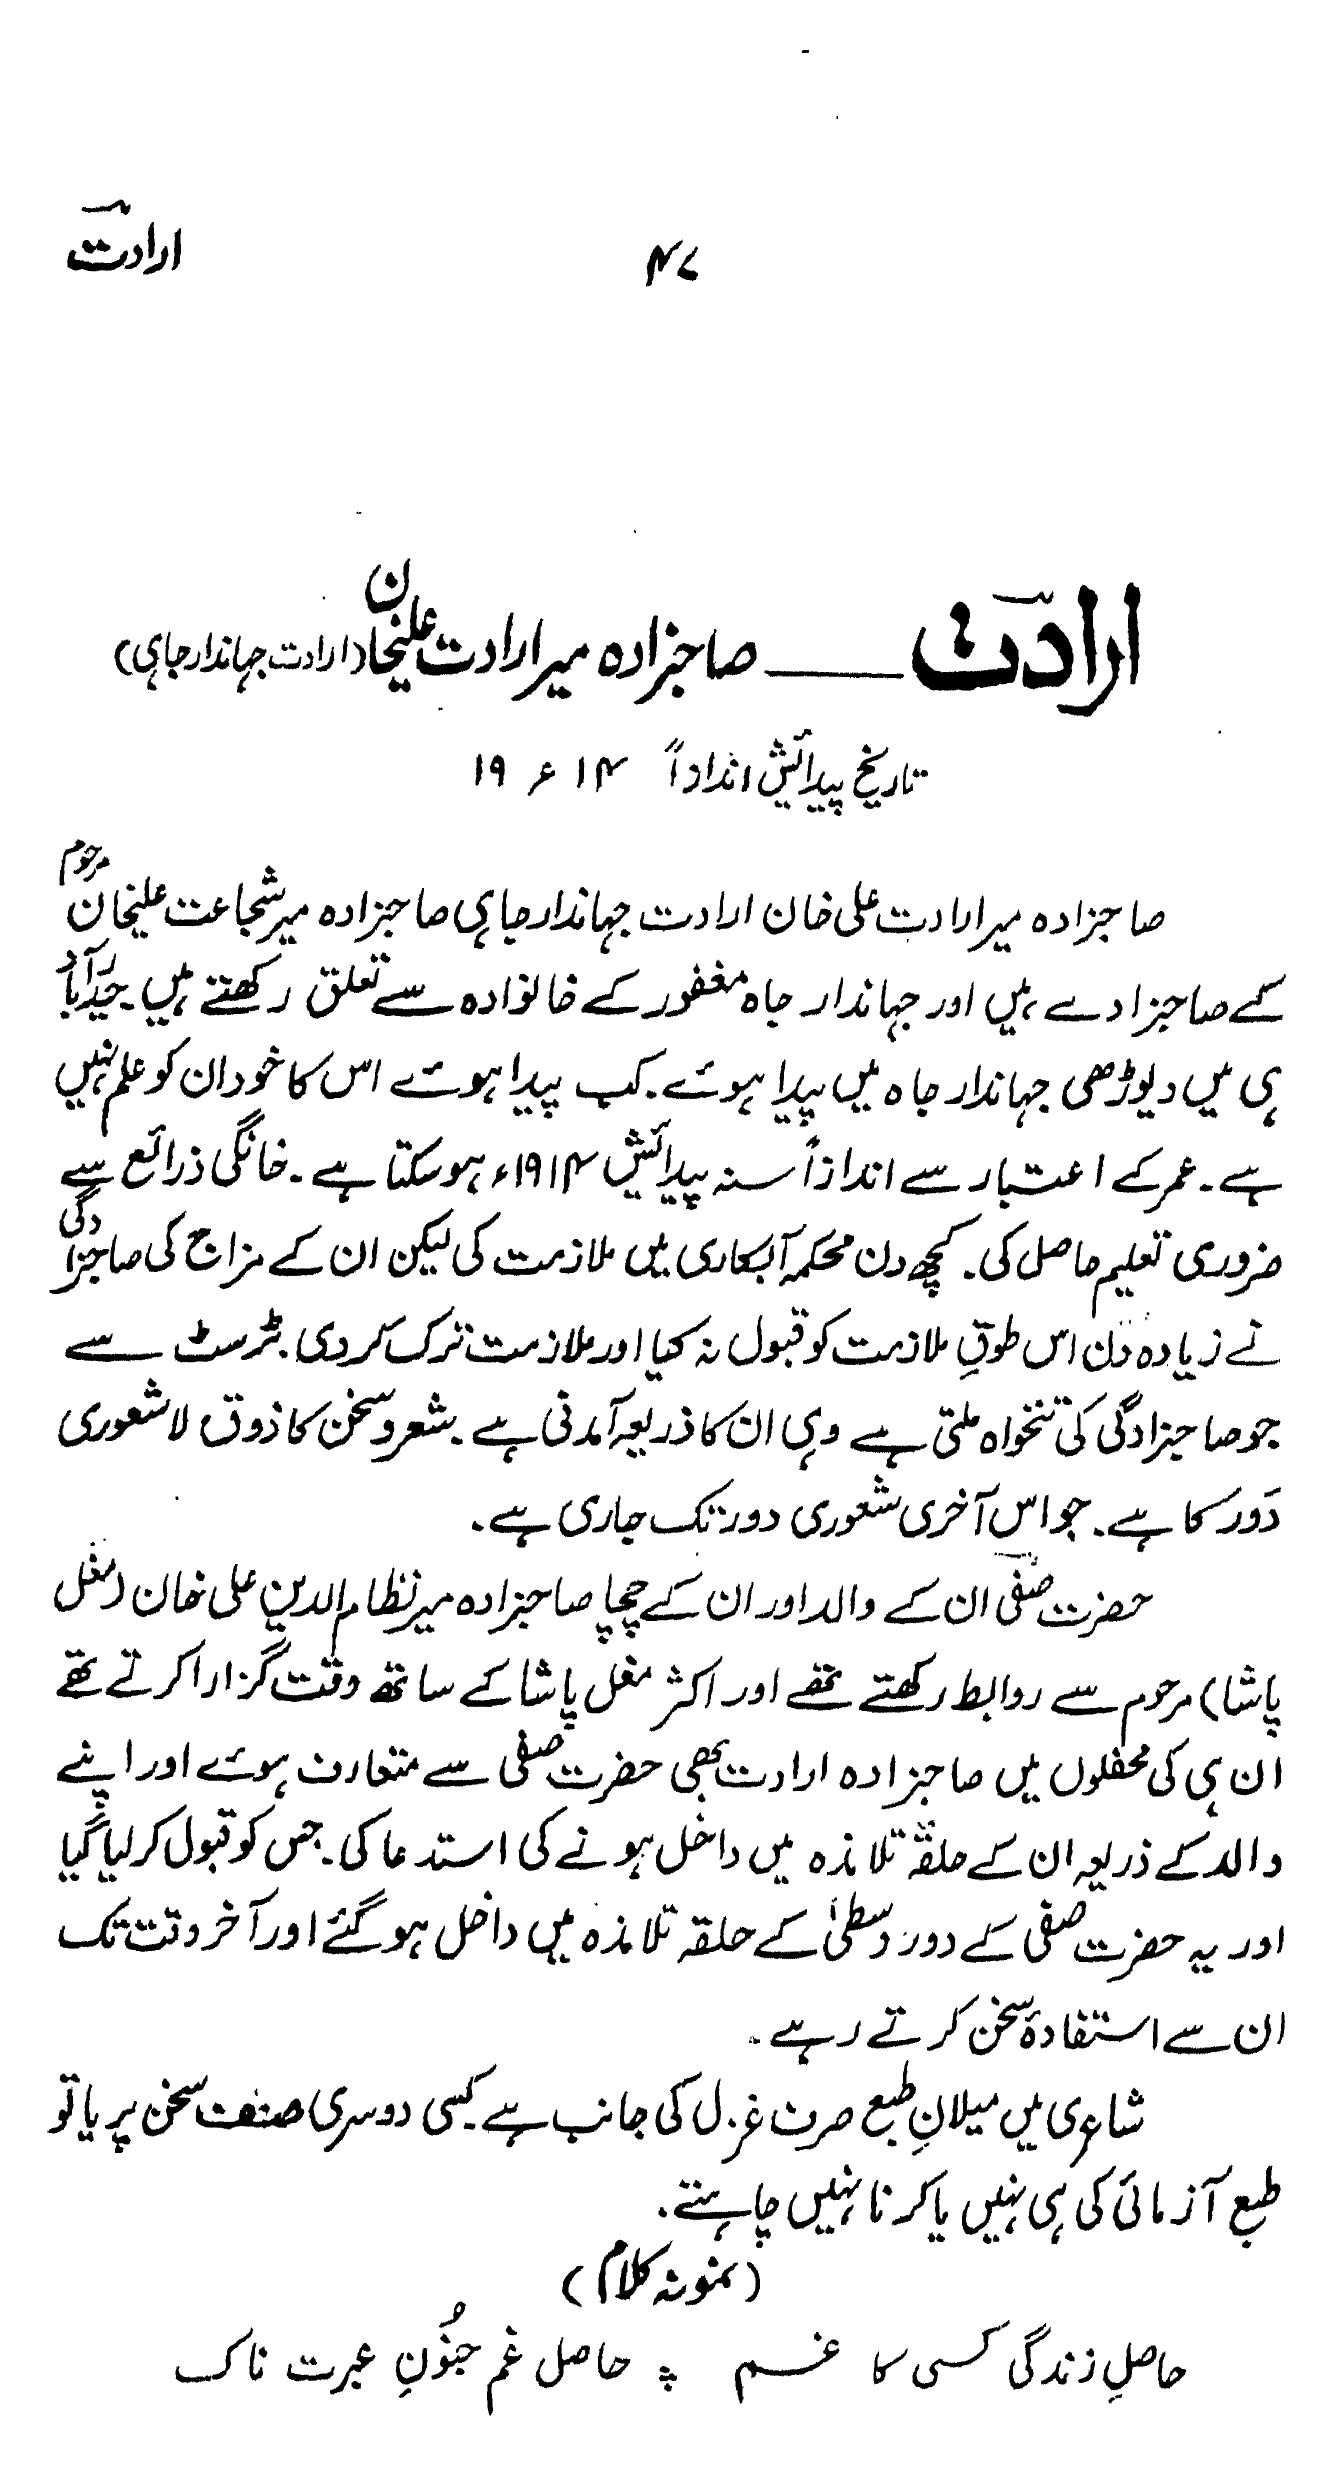 ارادتؔ
۴۷
ارادتؔ ـــــ صاحبزادہ میر ارادت علیخان (ارادت جہاندارجاہی)
تاریخ پیدائش اندازاً ۱۹۱۴ء
صاحبزادہ میر ارادت علی خان ارادت جہاندارجاہی صاحبزادہ میر شجاعت علیخان مرحوم
کے صاحبزادے ہیں اور جہاندار جاہ مغفور کے خانوادہ سے تعلق رکھتے ہیں۔ حیدرآباد
ہی میں دیوڑھی جہاندار جاہ میں پیدا ہوئے۔ کب پیدا ہوئے اس کا خود ان کو علم نہیں
ہے۔ عمر کے اعتبار سے اندازاً سنہ پیدائش ۱۹۱۴ء ہوسکتا ہے۔ خانگی ذرائع سے
ضروری تعلیم حاصل کی۔ کچھ دن محکمہ آبکاری میں ملازمت کی لیکن ان کے مزاج کی صاحبزادگی
نے زیادہ دن اس طوقِ ملازمت کو قبول نہ کیا اور ملازمت ترک کردی۔ ٹرسٹ سے
جو صاحبزادگی کی تنخواہ ملتی ہے وہی ان کا ذریعہ آمدنی ہے۔ شعر و سخن کا ذوق لاشعوری
دَور کا ہے۔ جو اس آخری شعوری دور تک جاری ہے۔
حضرت صفیؔ ان کے والد اور ان کے چچا صاحبزادہ میر نظام الدین علی خان (مغل
پاشا) مرحوم سے روابط رکھتے تھے اور اکثر مغل پاشا کے ساتھ وقت گزارا کرتے تھے
ان ہی کی محفلوں میں صاحبزادہ ارادت بھی حضرت صفی سے متعارف ہوئے اور اپنے
والد کے ذریعہ ان کے حلقۂ تلامذہ میں داخل ہونے کی استدعا کی۔ جس کو قبول کرلیا گیا
اور یہ حضرت صفی کے دور وسطیٰ کے حلقہ تلامذہ میں داخل ہوگئے اور آخر وقت تک
ان سے استفادۂ سخن کرتے رہے۔
شاعری میں میلانِ طبع صرف غزل کی جانب ہے۔ کسی دوسری صنف سخن پر یا تو
طبع آزمائی کی ہی نہیں یا کرنا نہیں چاہتے۔
(نمونہ کلام)
حاصلِ زندگی کسی کا غم ؞ حاصل غم جنُونِ عبرت ناک